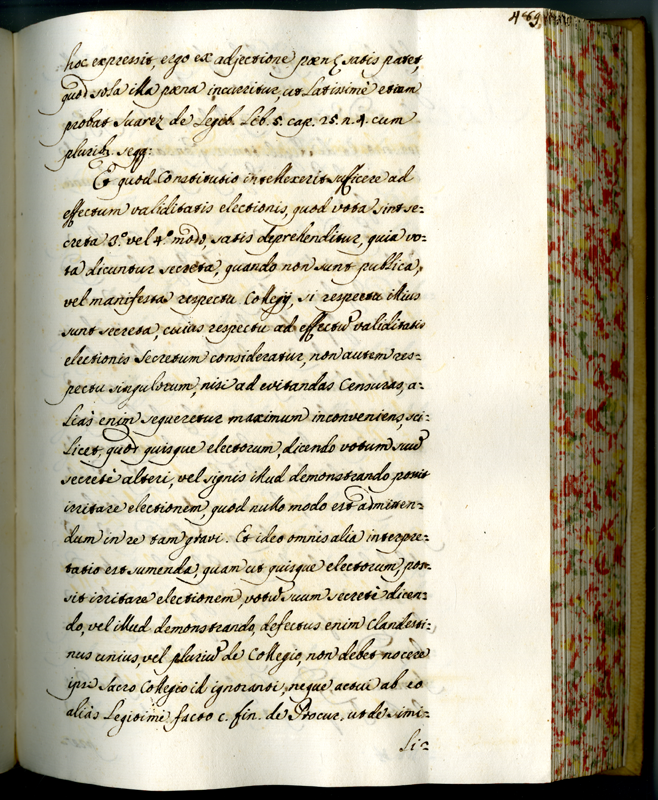 489.
hoc expressit, ergo ex adjectione pænę satis patet,
quod sola illa pæna incurritur, ut Latissimè etiam
probat Suarez de Legib. Lib. 5. cap. 25. n. 4. cum
plurib. seqq:
Et quod Constitutio intellexerit sufficere ad
effectum validitatis electionis, quod vota sint se=
creta 3.º vel 4.º modo, satis deprehenditur, quia vo=
ta dicuntur secreta, quando non sunt publica,
vel manifesta respectu Collegij, si respectu illius
sunt secreta, cuius respectu ad effectū validitatis
electionis secretum consideratur, non autem res=
pectu singulorum, nisi ad evitandas Censuras, a=
liàs enim sequeretur maximum inconveniens, sci=
licet, quod quisque electorum, dicendo votum suū
secretè alteri, vel signis illud demonstrando possit
irritare electionem, quod nullo modo est admitten=
dum in re tam gravi. Et ideò omnis alia interpre=
tatio est sumenda, quam ut quisque electorum, pos=
sit irritare electionem, votū suum secretè dicen=
do, vel illud demonstrando, defectus enim Clandesti=
nus unius, vel pluriū de Collegio, non debet nocere
ipsi Sacro Collegio id ignoranti, neque actui ab eo
aliàs Legitimè facto c. fin. de Procur, ut de simi=
li=